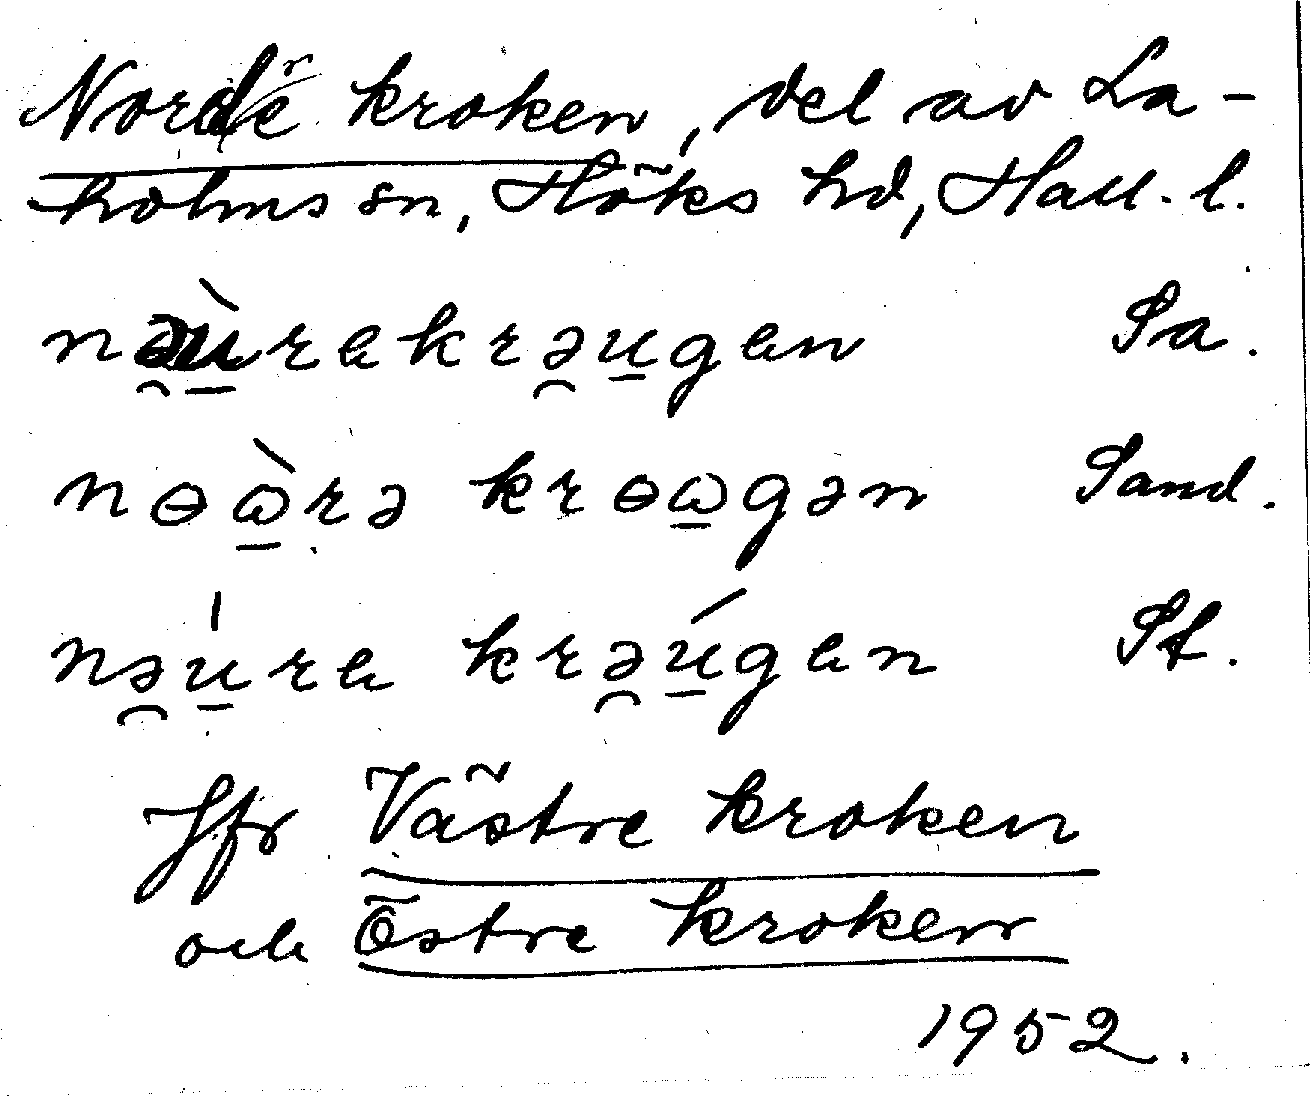 Nordre kroken, del av La-
holms sn, Höks hd, Hall. l.
nə̯ù̱rakrə̯u̱gan Sa.
nɵὼ̱rə krɵω̱gən Sand.
nə̯u̱̍ra krə̯ú̱gan St.
Jfr Västre kroken
och Östre kroken
1952.